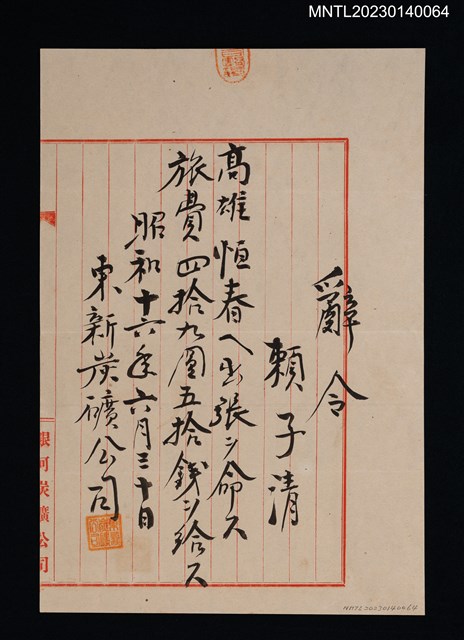 MNTL20230140064
辭令
賴子清
高雄恒春へ出張ヲ命ス
旅費四拾九圓五拾錢ヲ給ス
昭和十六年六月三十日
東新炭礦公司
銀河炭礦公司
MNTL20230140064